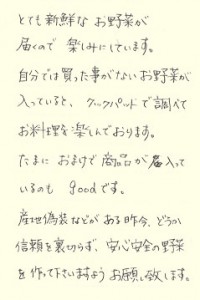 とても新鮮な お野菜が
届くので 楽しみにしています。
自分では買った事がないお野菜が
入っていると、クックパットで調べて
お料理を楽しんでおります。
たまに おまけで商品が 入って
いるのも goodです。
産地偽装などがある昨今、どうか
信頼を裏切らず、安心安全の野菜
を作って下さいますよう お願い致します。